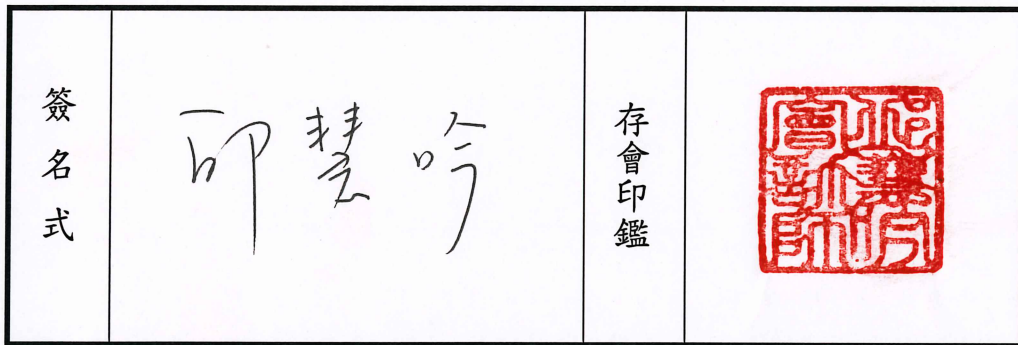 簽名式
邱慧吟
存會印鑑
邱慧吟
會計師